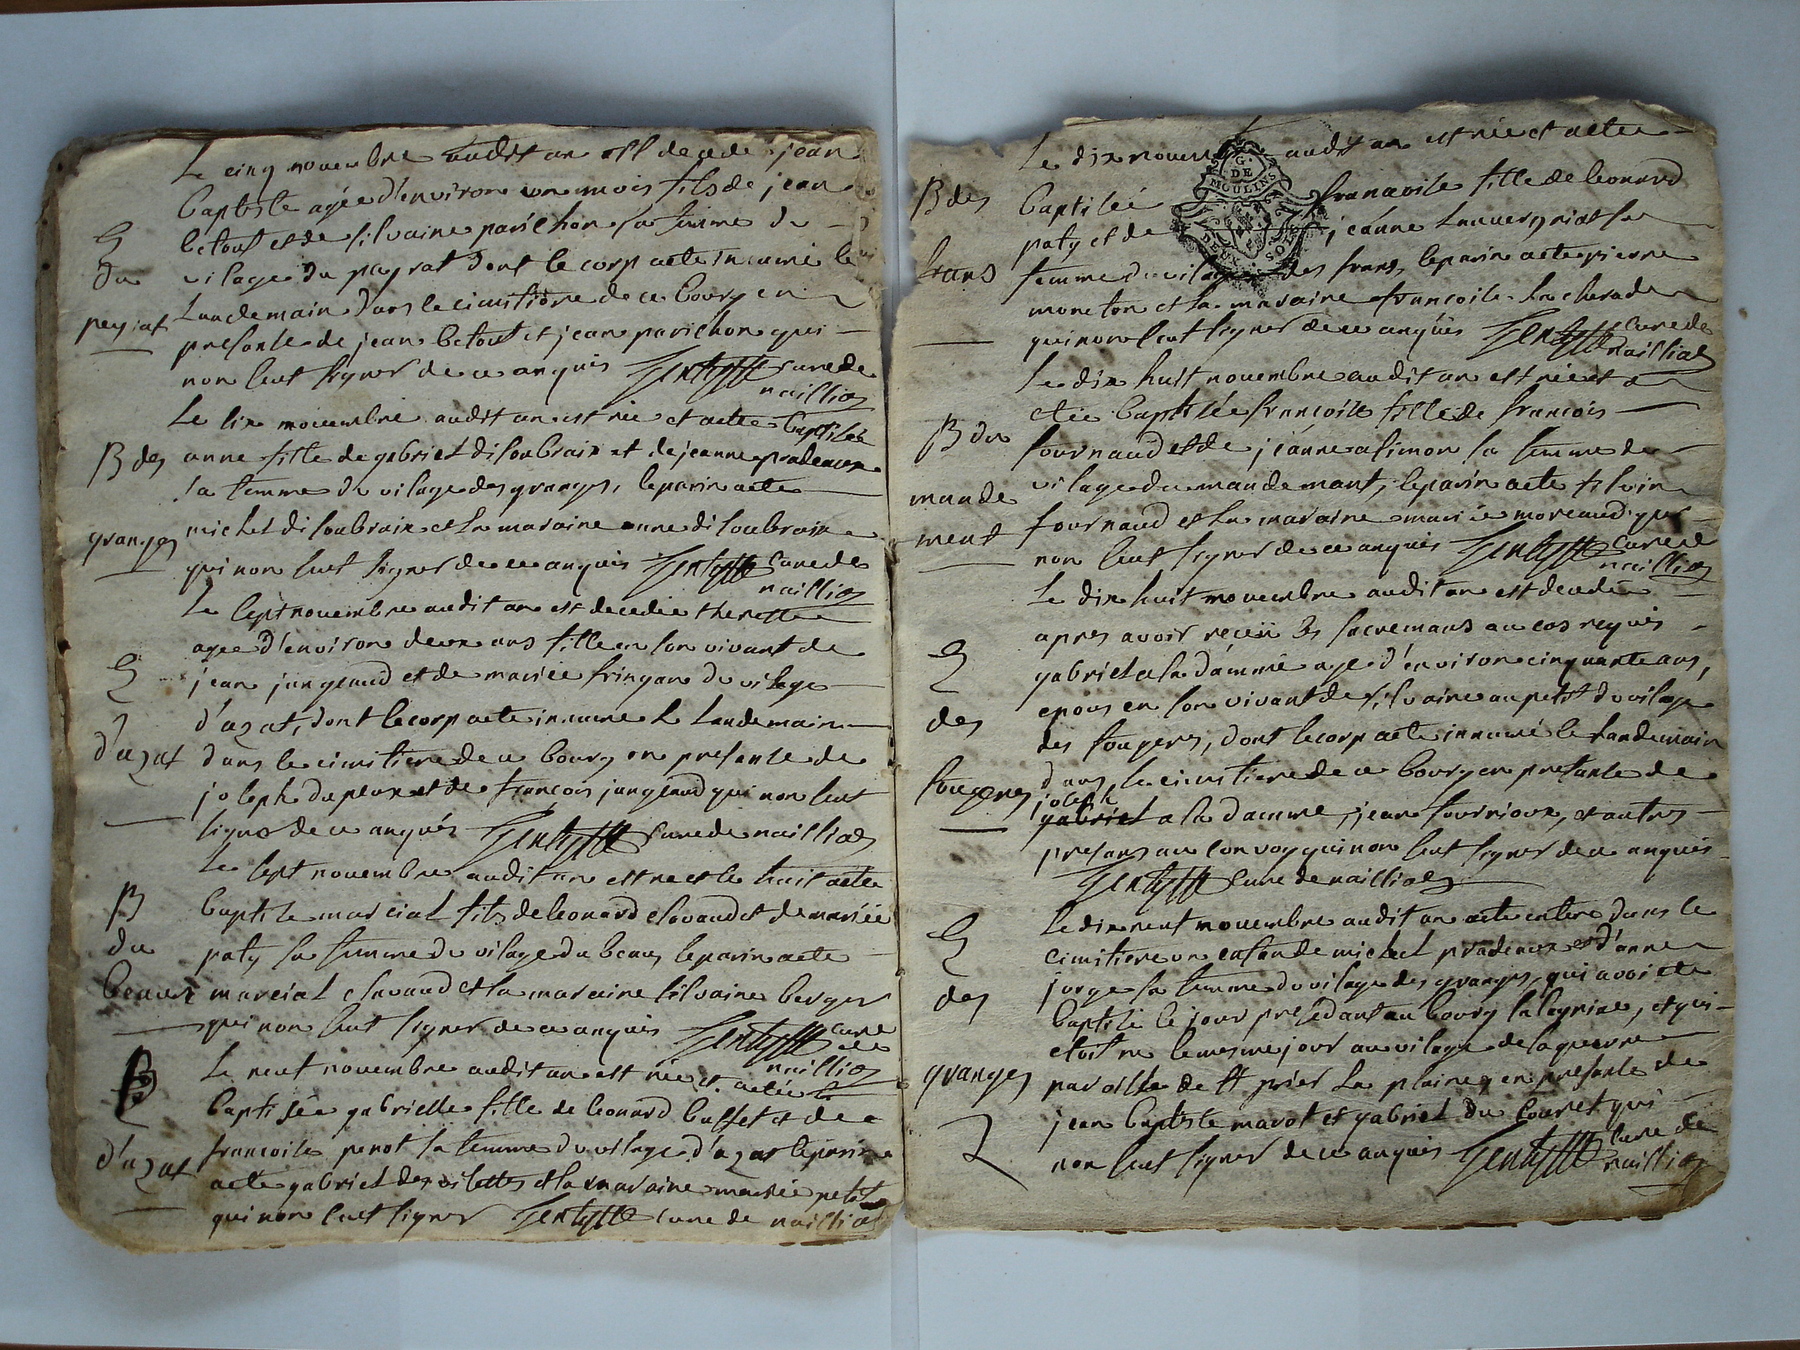 Le cinq novembre audit an est decedé jean
baptiste agée d'environ un mois fils de jean
betout et de silvaine parichon sa femme du
E
du
vilage du peyrat dont le corp aeté innumé le
peyrat
landemain dans le cimitiere de ce bourg en
presante de jean betout et jean parichon qui
non seut signer de ce anquis curé de
naillias
Le six novembre audit an est née et aeté baptisée
B des
anne fille de gabriel disoubrais et de jeanne pradeaux
sa femme du vilage des granges, le parin aeté
granges
michel disoubrais et la maraine anne disoubrais
qui non seut signer de ce anquis curé de
naillias
Le sept novembre audit an est decedée
agee d'environ deux ans fille en son vivant de
E
jean jungeaud et de mariée fringan du vilage
d'azat
d'azat, dont le corp aeté innumé le landemain
dans le cimitiere de ce bourg en presante de
joseph dupeux et de francois jungeaud qui non seut
signer de ce anquis curé de naillias
Le sept novembre audit an est né et le huit aeté
B
du
beaux
baptisé marcial fils de leonard chavaud et de mariée
paty sa femme du vilage du beaux le parin aeté
marcial chavaud et la maraine silvaine berger
qui non seut signer de ce anquis curé
de
naillias
Le neuf novembre audit an est née et aeté
B
baptisée gabrielle fille de leonard busset et de
d'azat
francoise penot sa femme du vilage d'azat le parin
aeté gabriel desvilettes et la maraine mariée petit
qui non seut signer curé de naillias
Le dix novem audit an est née et aeté
G.
DE
MOULINS
DEUX SOLS
B des
baptisée francoise fille de leonard
paty et de jeanne Lauvergniat sa
frans
femme du vilage des frans, le parin aeté pierre
moneton et la maraine francoise
qui non seut signer de ce anquis curé de
naillias
Le dix huit novembre audit an est née et a
etée baptisée francoise fille de francois
B du
fournaud et de jeanne asimon sa femme du
mande
ment
vilage du mandemant, le parin aeté silvin
fournaud et la maraine mariée moreaud qui
non seut signer de ce anquis curé de
naillias
Le dix huit novembre audit an est decedé
apres avoir receu les sacremans au cas requis
E
des
fougeres
gabriel aladamme age d'environ cinquante ans,
epous en son vivant de silvaine aupetit du vilage
des fougeres, dont le corp aeté innumé le landemain
dans le cimitiere de ce bourg en presante de
joseph
gabriel aladamme, jean fournioux, et autres
presans au convoy qui non seut signer de ce anquis
curé de naillias
Le dix neuf novembre audit an aeté enteré dans le
E
des
granges
cimitiere un enfan de michel pradeaux et d'anne
jorge sa femme du vilage des granges, qui avoit eté
baptisé le jour presedant au bourg , et qui
etoit né le mesme jour au vilage de
paroisse de st la plaine, en presante de
jean baptiste marot et gabriel du couret qui
non seut signer de ce anquis curé de
naillias